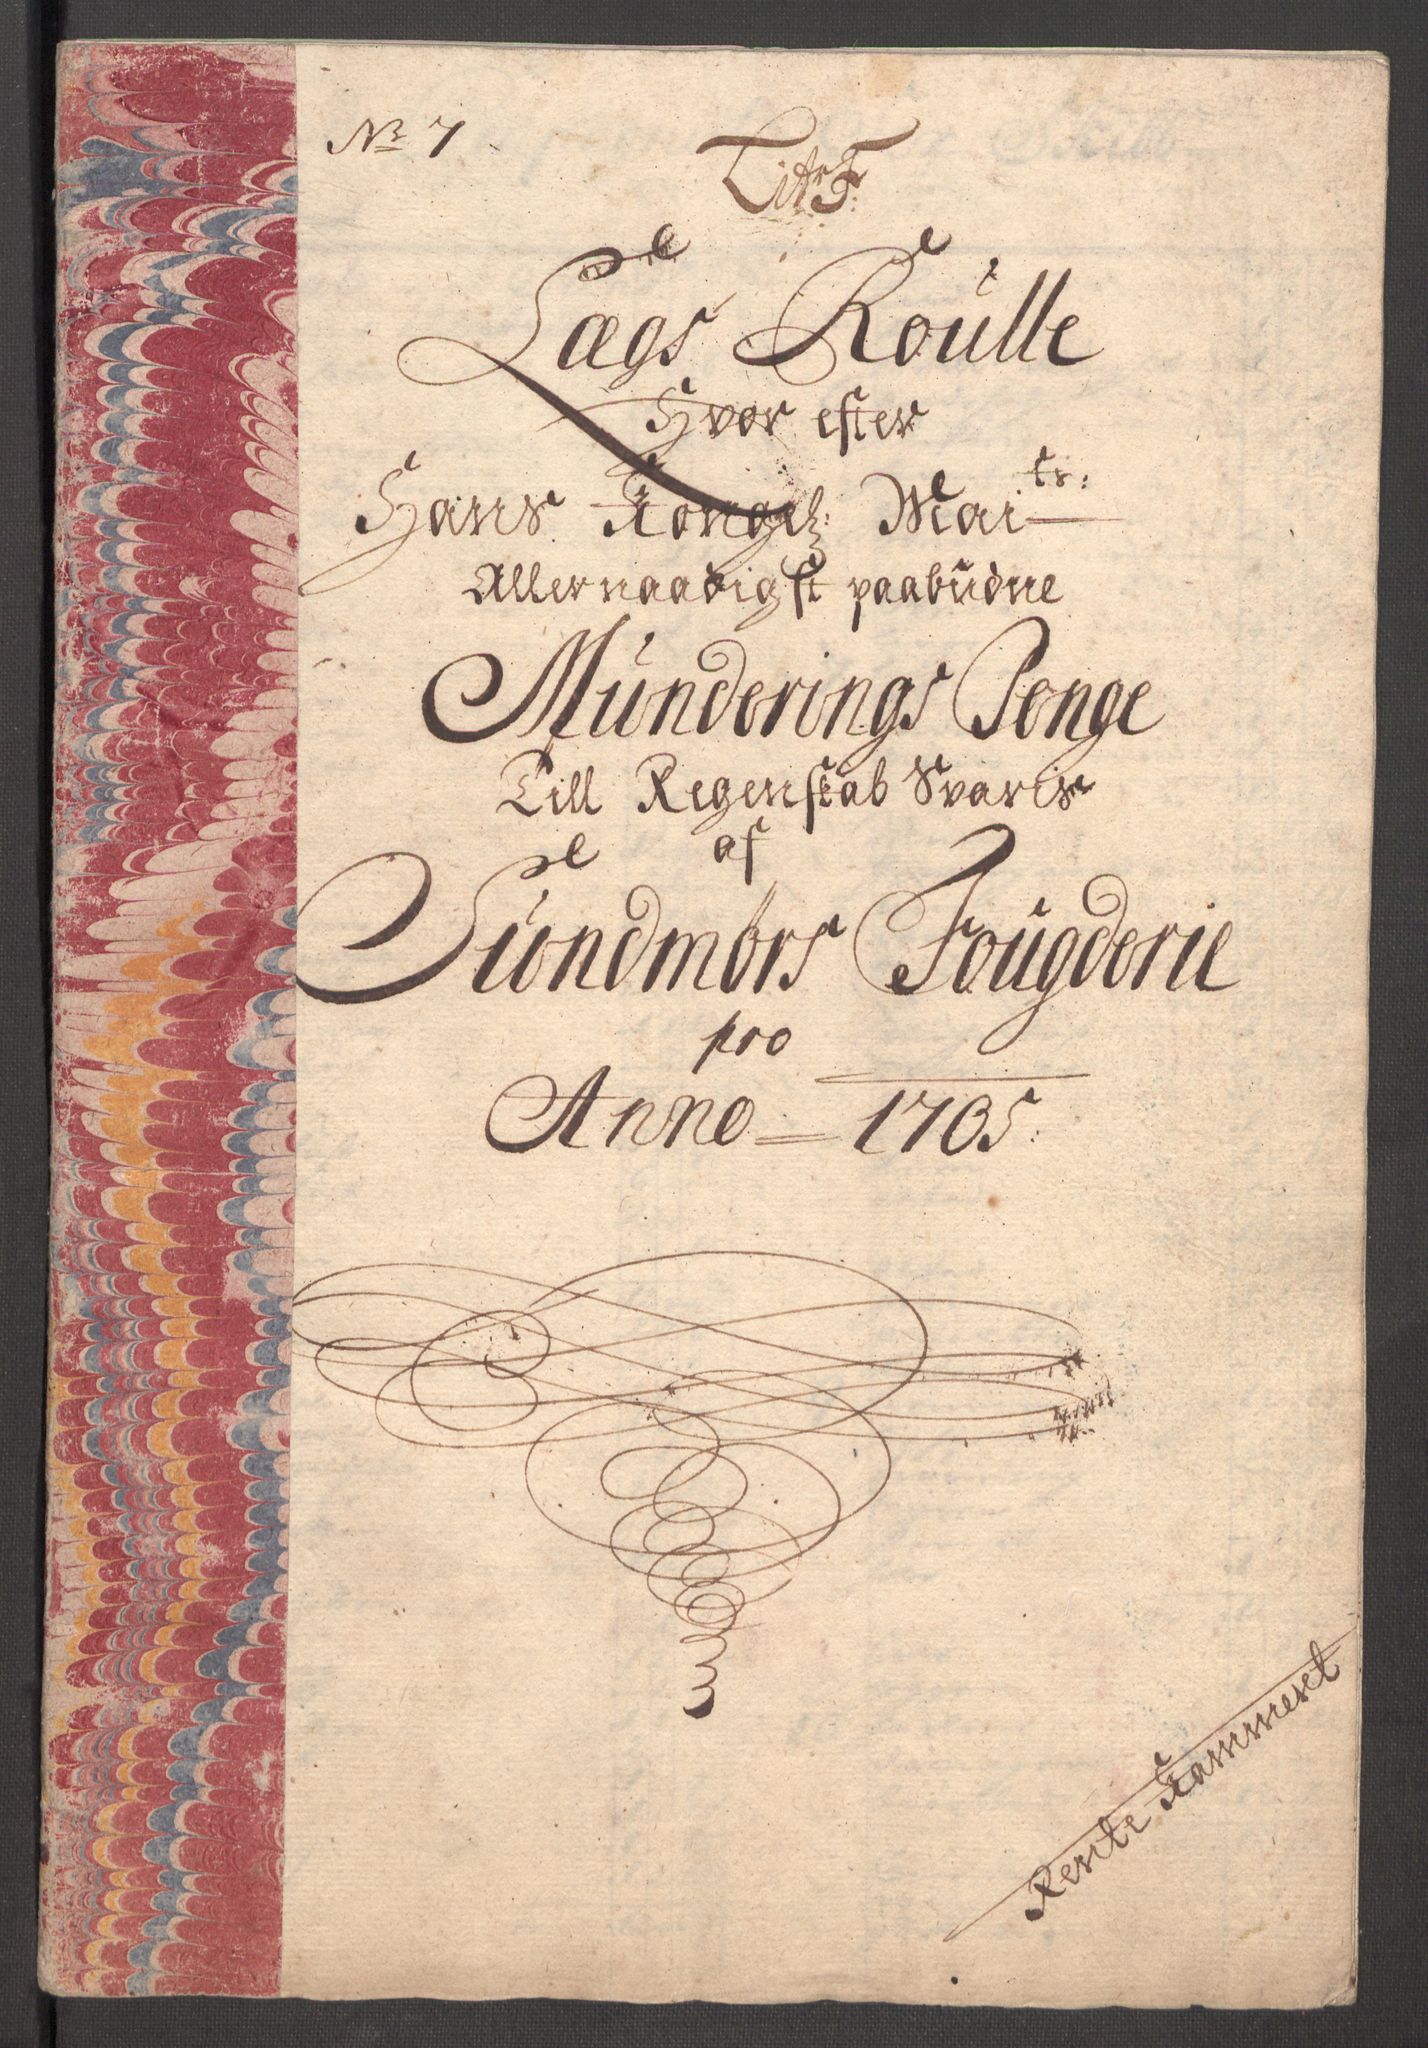 No 7
Litr F:
Lægs Roulle
Hvor efter
Hans Kongel: Maits:
Allernaadigst paabudne
Munderings Penge
Till Regenskab Svaris
af
Sundmörs Fougderie
pro
Anno 1705:
Rente Kammeret